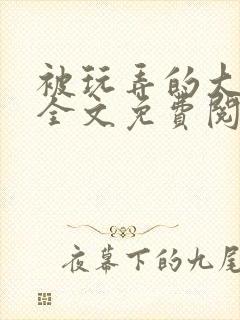 被玩弄的大
全文免費閱
夜幕下的九尾